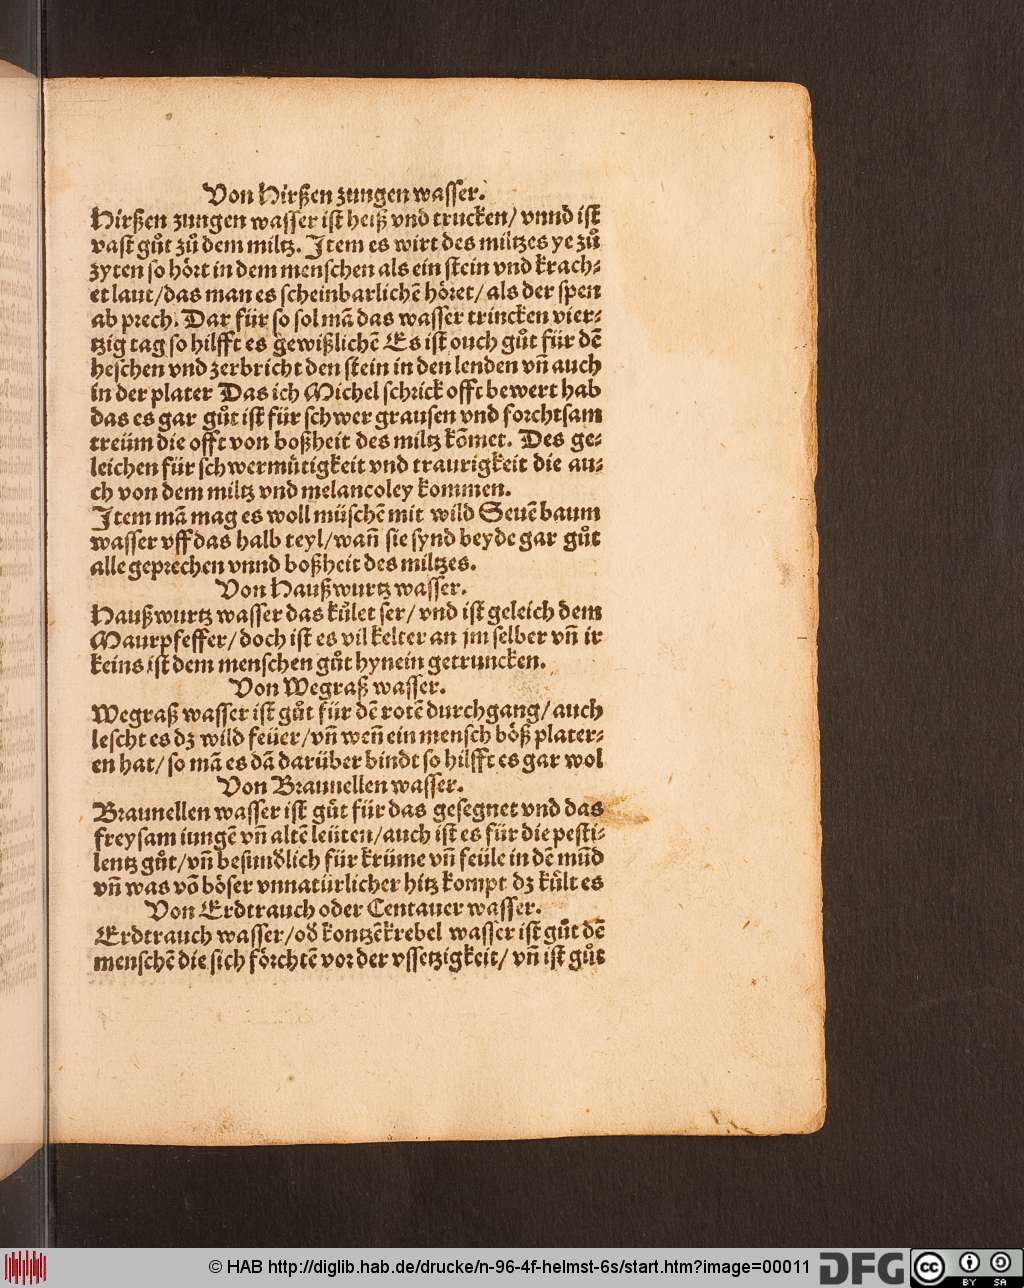 Von Hirßen zungen wasser.
Hirßen zungen wasser ist heiß vnd trucken/ vnnd ist
vast gůt zů dem miltz. Item es wirt des miltzes ye zů
zyten so hört in dem menschen als ein stein vnd krach⸗
et laut/das man es scheinbarlichē höret/ als der spen
ab prech. Dar für so sol mā das wasser trincken vier⸗
tzig tag so hilfft es gewißlichē Es ist ouch gůt für dē
heschen vnd zerbricht den stein in den lenden vn̄ auch
in der plater Das ich Michel schrick offt bewert hab
das es gar gůt ist für schwer grausen vnd forchtsam
treüm die offt von boßheit des miltz kōmet. Des ge⸗
leichen für schwermůtigkeit vnd traurigkeit die au⸗
ch von dem miltz vnd melancoley kommen.
Item mā mag es woll müschē mit wild Seuē baum
wasser vff das halb teyl/wan̄ sie synd beyde gar gůt
alle geprechen vnnd boßheit des miltzes.
Von Haußwurtz wasser.
Haußwurtz wasser das kůlet ser/ vnd ist geleich dem
Maurpfeffer/ doch ist es vil kelter an jm selber vn̄ ir
keins ist dem menschen gůt hynein getruncken.
Von Wegraß wasser.
Wegraß wasser ist gůt für dē rotē durchgang/ auch
lescht es dz wild feüer/vn̄ wen̄ ein mensch böß plater⸗
en hat/ so mā es dā darüber bindt so hilfft es gar wol
Von Braunellen wasser.
Braunellen wasser ist gůt für das gesegnet vnd das
freysam iungē vn̄ altē leüten/auch ist es für die pesti⸗
lentz gůt/vn̄ besundlich für krüme vn̄ feüle in dē mūd
vn̄ was vō böser vnnatürlicher hitz kompt dz kůlt es
Von Erdtrauch oder Centauer wasser.
Erdtrauch wasser/od kontzēkrebel wasser ist gůt dē
menschē die sich förchtē vor der vssetzigkeit/ vn̄ ist gůt
© HAB http://diglib.hab.de/drucke/n-96-4f-helmst-6s/start.htm?image=00011
DFG
cc
BY SA